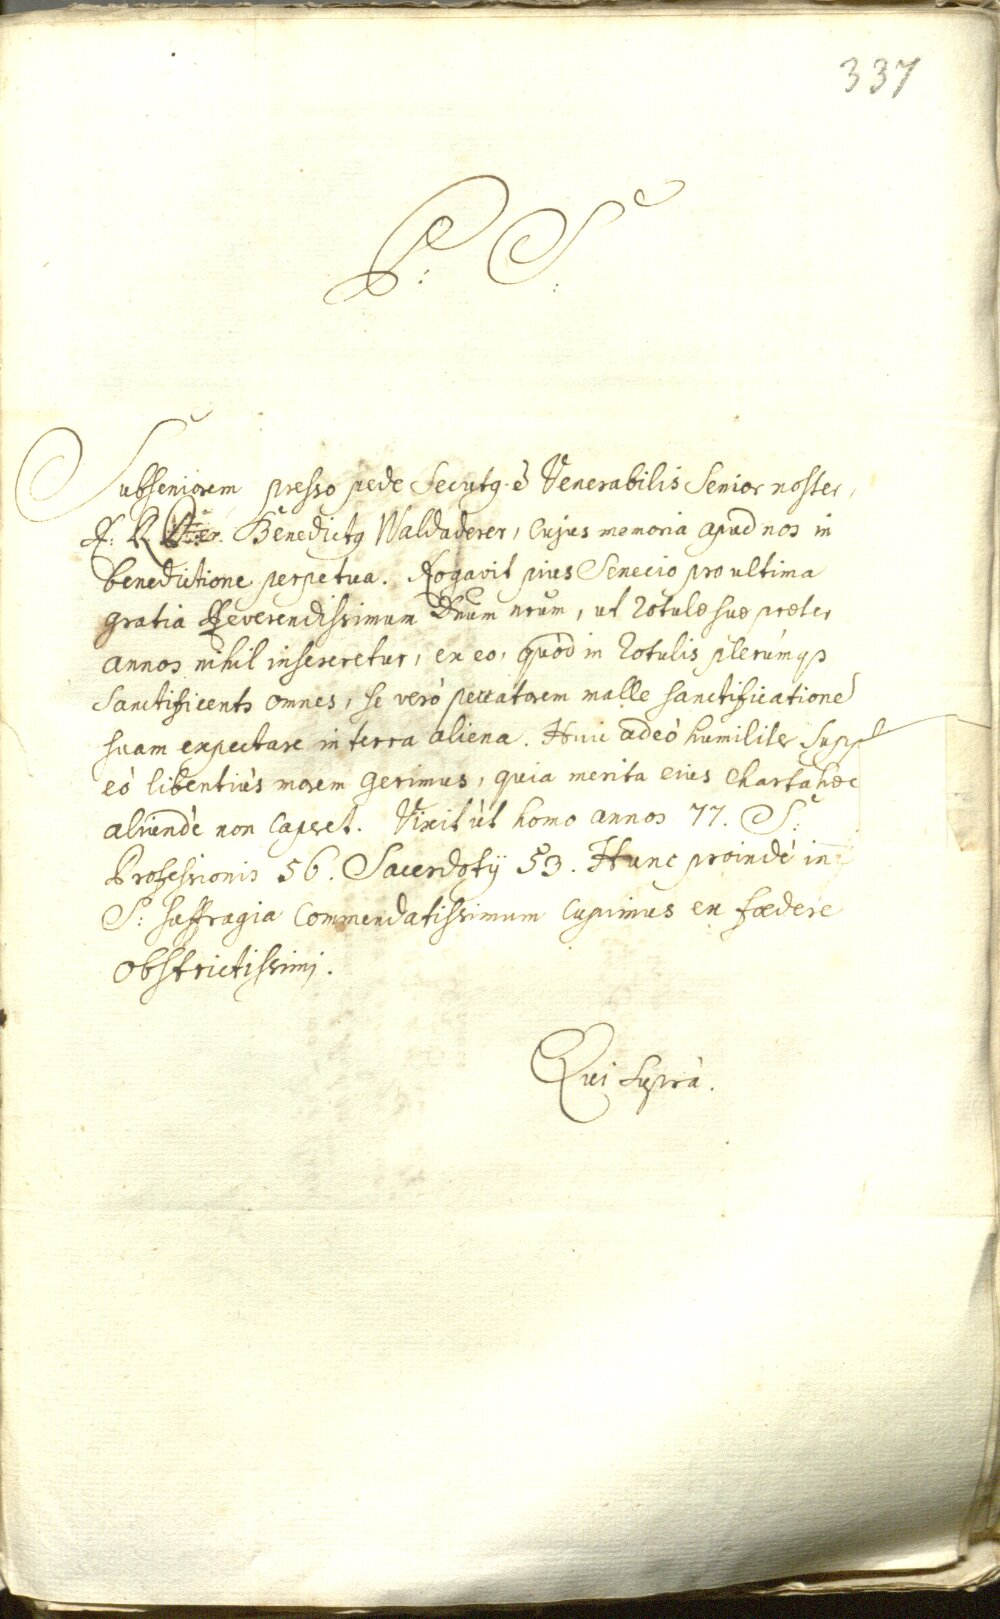 337
P: S:
Subseniorem presso pede Secutq. è Venerabilis Senior noster,
A: R. Benedictq Waldaderer, Cujus memoria apud nos in
benedictione perpetua. Rogavit pius Senecio pro ultima
gratia Reverendissimum Dnum nrum, ut Rotulæ suæ præter
annos nihil insereretur, ex eo, quòd in Rotulis plerumqs
Sanctificents omnes, se verò peccatorem malle sanctificationē
suam expectare in terra aliena. Huic adeò humiliter Suppl
eò libentiùs morem gerimus, quia merita eius Charta hæc
aliundè non Caperet. Vixit ùt homo annos 77. S:
Professionis 56. Sacerdotij 53. Hunc proindè in
S: suffragia Commendatissimum Cupimus ex fœdere
obstrictissimj.
Qui suprà.